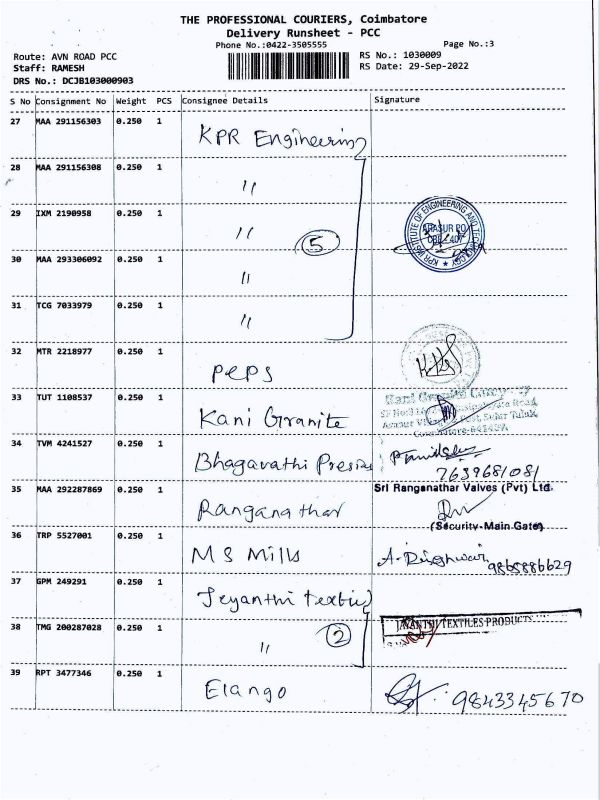 THE PROFESSIONAL COURIERS, Coimbatore
Delivery Runsheet - PCC
Phone No.:0422-3505555
Page No.:3
Route: AVN ROAD PCC
RS No.: 1030009
Staff: RAMESH
RS Date: 29-Sep-2022
DRS No.: DCJB103000903
S No Consignment No Weight PCS Consignee Details Signature
27 MAA 291156303 0.250 1 KPR Engineering
28 MAA 291156308 0.250 1 〃
29 IXM 2190958 0.250 1 〃
KPR INSTITUTE OF ENGINEERING AND TECHNOLOGY
ARASUR PO
5
30 MAA 293306092 0.250 1 〃
31 TCG 7033979 0.250 1 〃
32 MTR 2218977 0.250 1 Peps
33 TUT 1108537 0.250 1 Kani Granite
Kani Granite
34 TVM 4241527 0.250 1 Bhagavathi
7639681081
35 MAA 292287869 0.250 1 Ranganathar
Sri Ranganathar Valves (Pvt) Ltd.
(Security-Main Gate)
36 TRP 5527001 0.250 1 M S Mills
9865886629
37 GPM 249291 0.250 1 Jeyanthi
38 TMG 200287028 0.250 1 〃 2
JAYANTHI TEXTILES PRODUCTS
39 RPT 3477346 0.250 1 Elango 9843345670